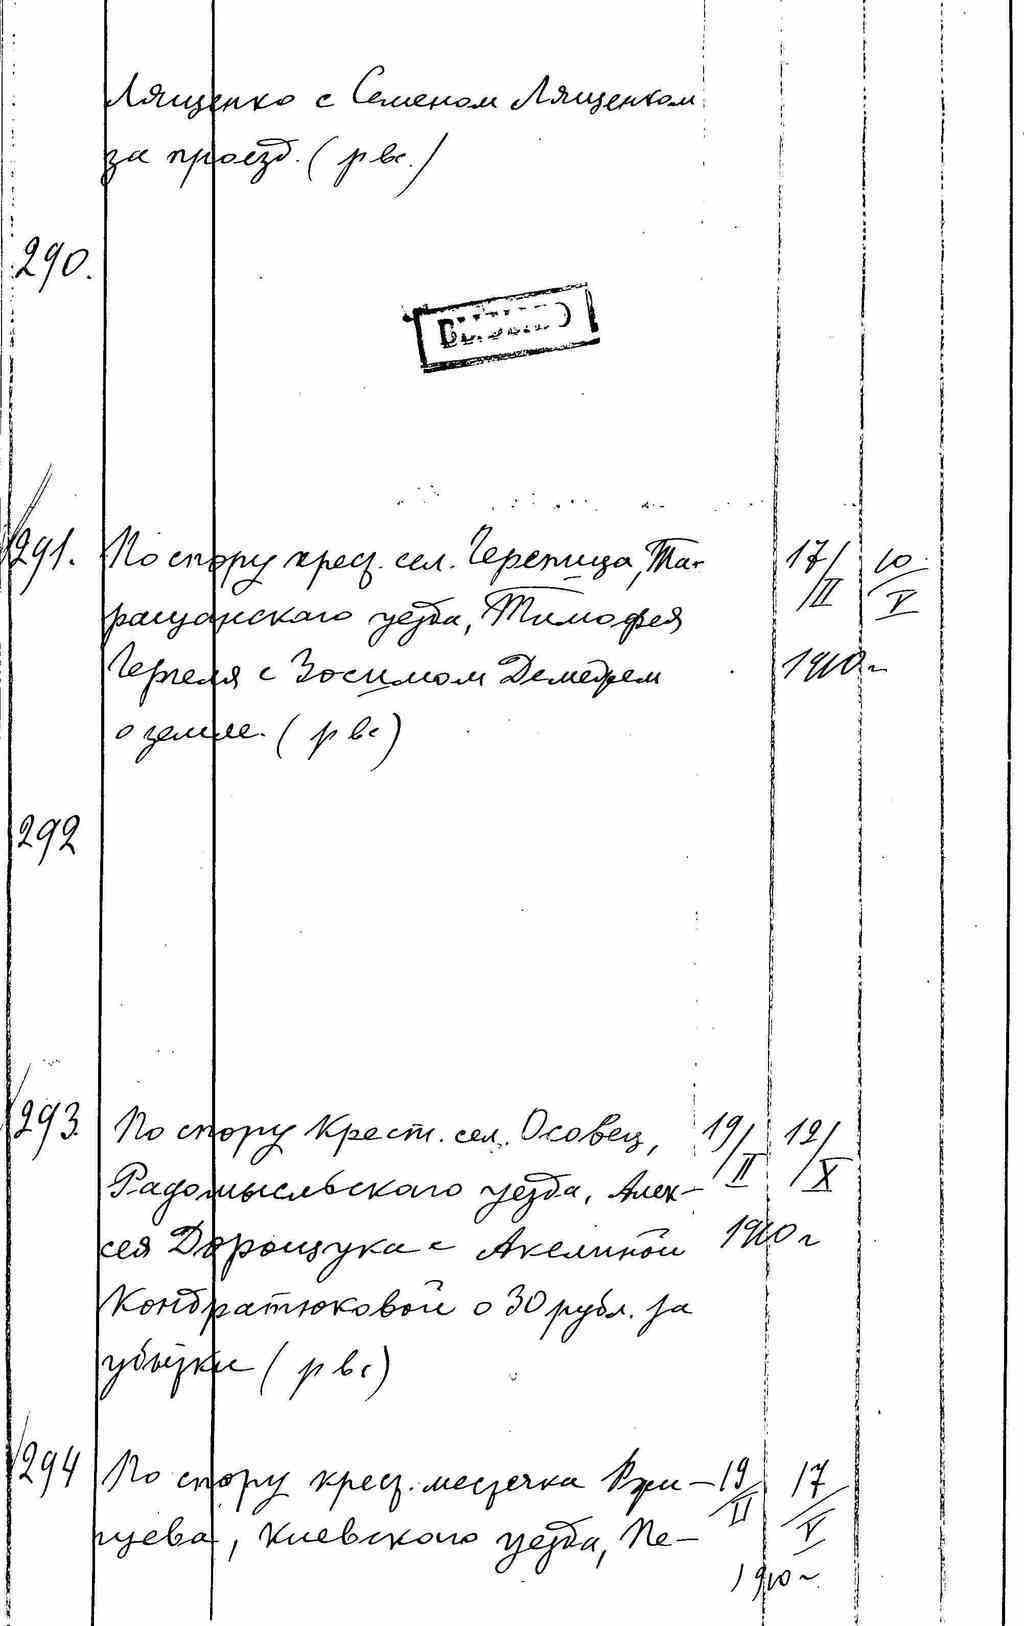 Лященко с Семеном Лященком
за проезд. (р вс.)
290.
291. По спору крест. сел. Черепица, Та-
ращанского уезда, Тимофея
с Зосимом
о земле. (р вс)
17/II 10/V
1910 г
292
293. По спору Крест. сел. Осовец,
Радомысльского уезда, Алек-
сея Дорощука с Акелиной
Кондратюковой о 30 рубл. за
убытки (р вс)
19/II 12/X
1910 г
294 По спору крест. местечка
Киевского уезда, Пе-
19/II 17/V
1910 г.